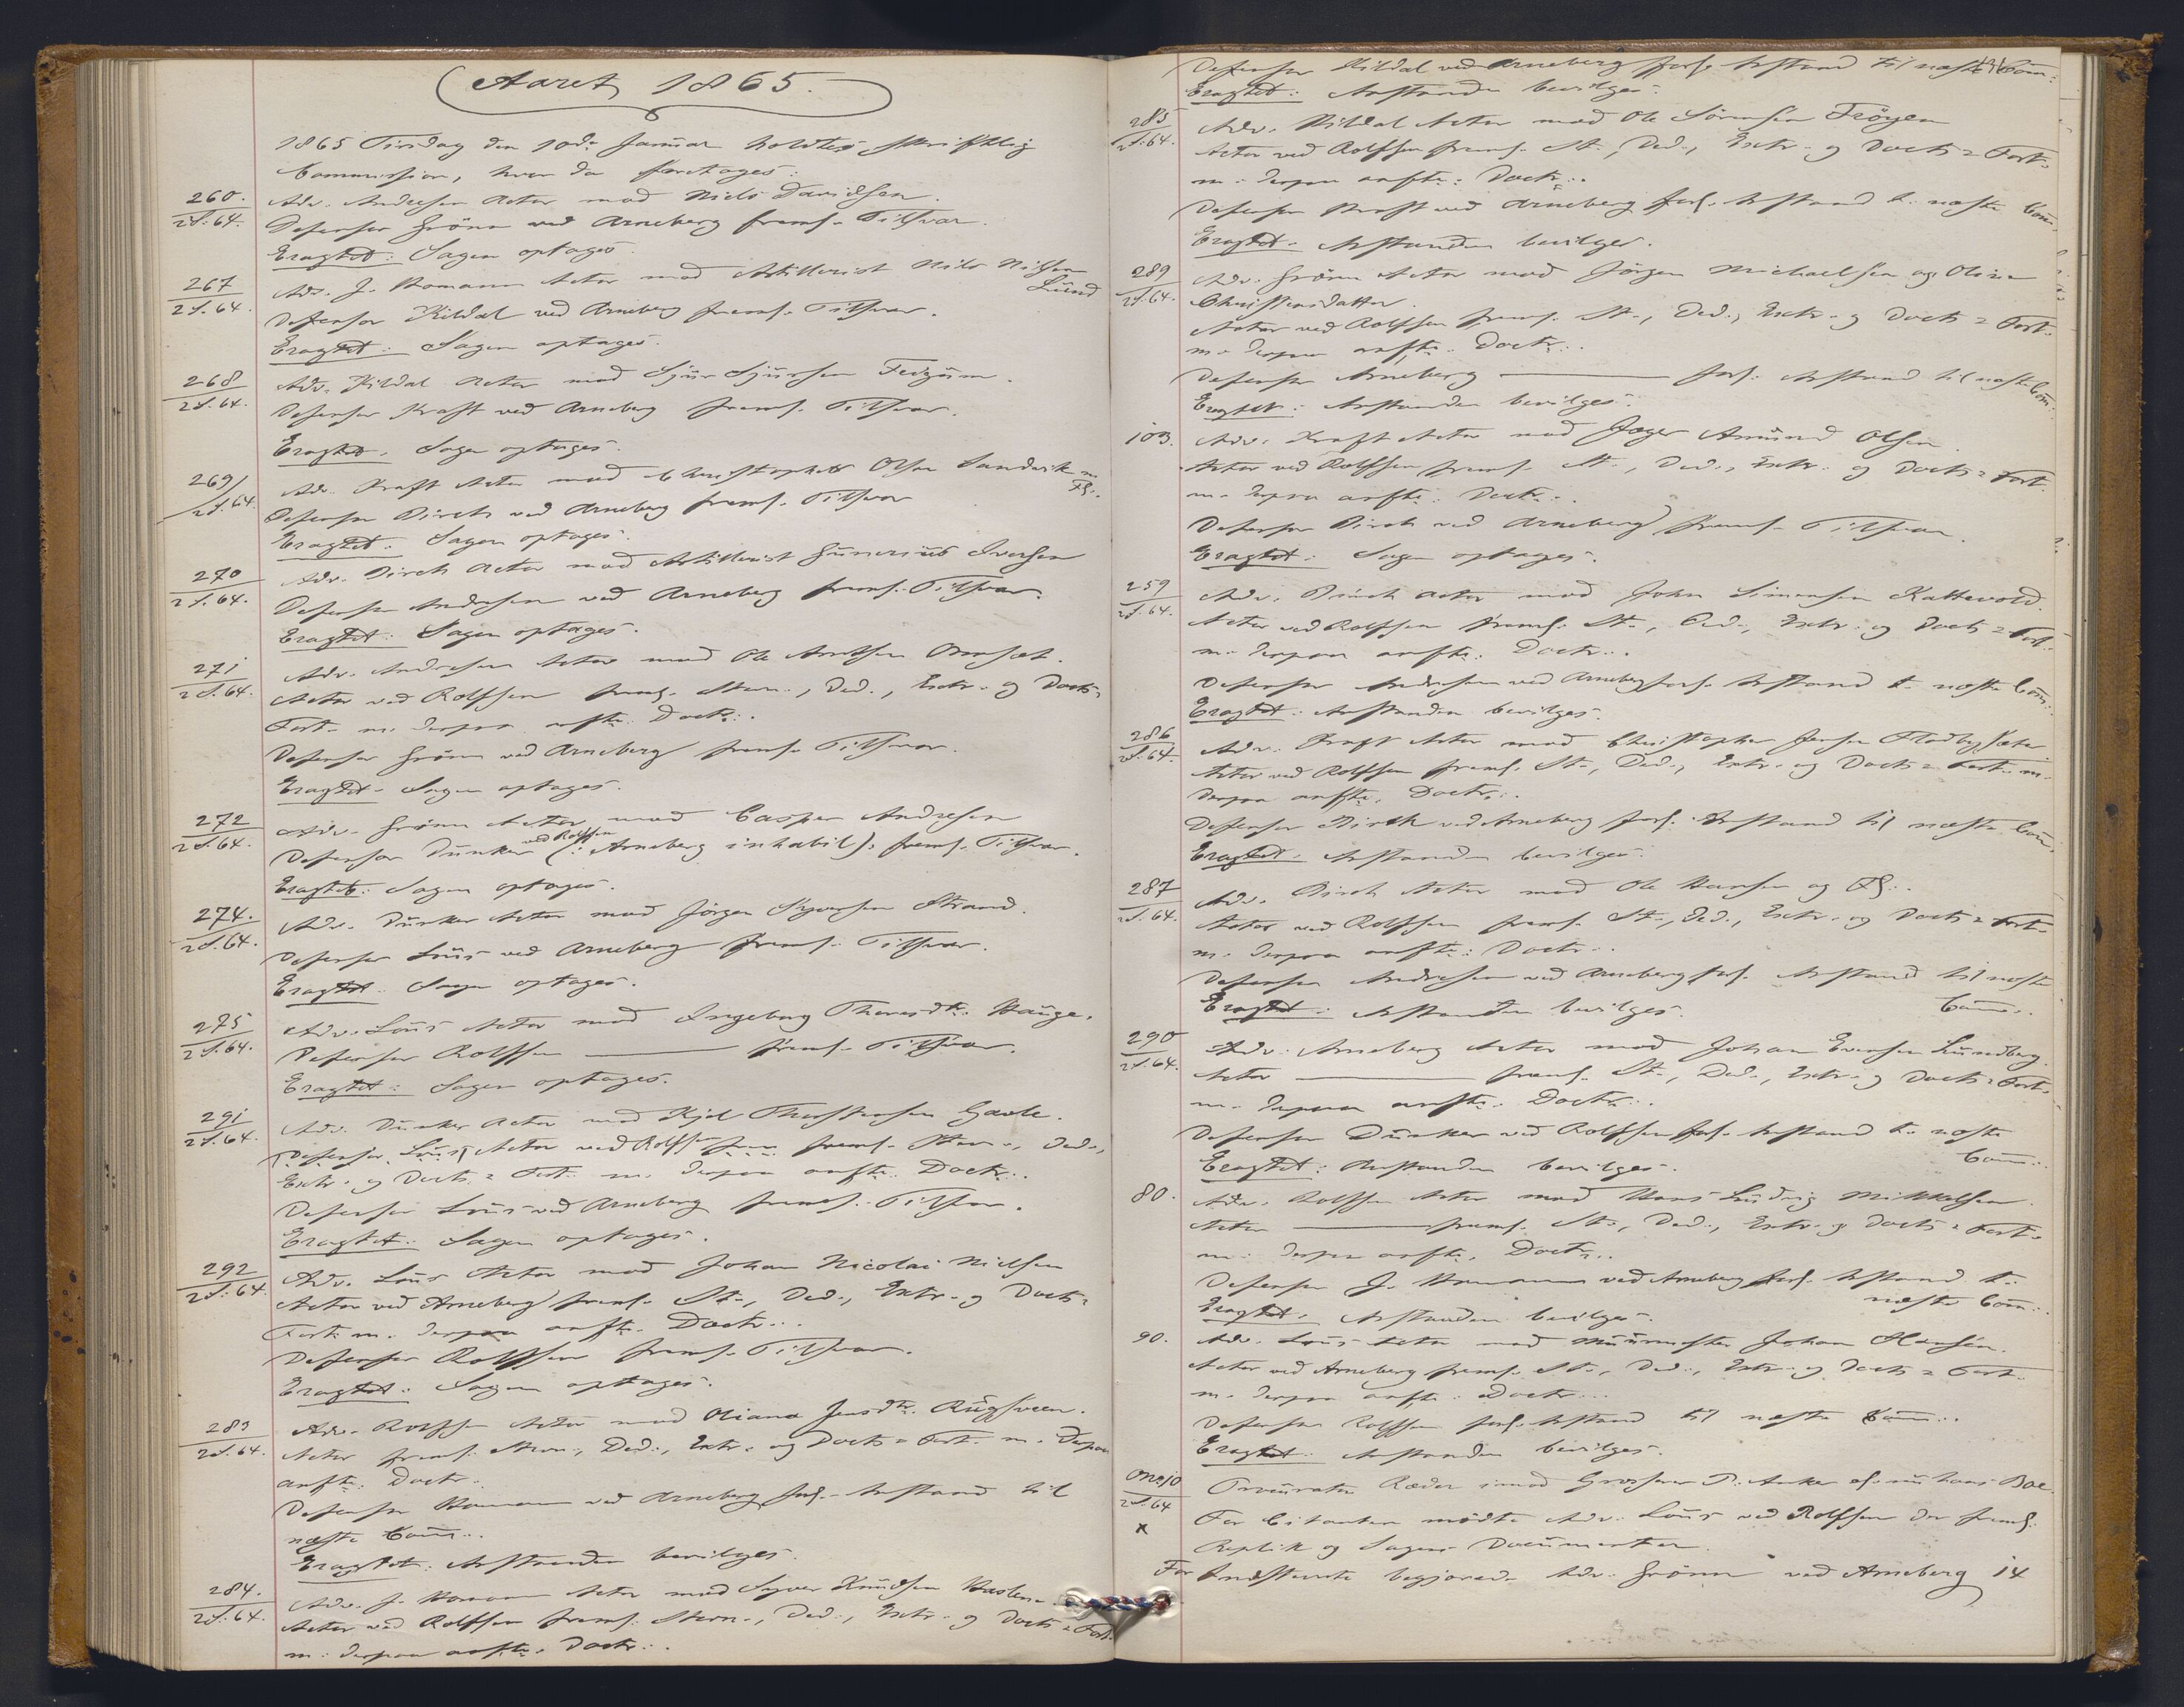 Aaret 1865.
1865 Tirsdag den 10de Januar holdtes skriftlig
Commission, hvor da foretoges:
260.
2 S. 64.
Adv. Andresen Actor mod Niels Davidsen.
Defensor Grönn ved Arneberg frems. Tilsvar.
Eragtet: Sagen optages.
267
2 S. 64.
Adv. J. Homann Actor mod Artillerist Nils Nilsen
Lund
Defensor Kildal ved Arneberg frems. Tilsvar.
Eragtet: Sagen optages.
268
2 S. 64.
Adv. Kildal Actor mod Sjur Sjursen
Defensor Kraft ved Arneberg frems. Tilsvar.
Eragtet: Sagen optages.
269
2 S. 64.
Adv. Kraft Actor mod Christopher Olsen Sandvik m.
Fl.
Defensor Birch ved Arneberg frems. Tilsvar
Eragtet: Sagen optages.
270
2 S. 64.
Adv. Birch Actor mod Artillerist Gunerius Iversen
Defensor Andresen ved Arneberg frems. Tilsvar.
Eragtet: Sagen optages.
271
2 S. 64.
Adv. Andresen Actor mod Ole Arntsen
Actor ved Rolfsen frems. Stevn., Ded., Extr. og Doct.
Fort. m. derpaa anfte. Doctr:.
Defensor Grönn ved Arneberg frems. Tilsvar.
Eragtet: Sagen optages.
272
2 S. 64.
Adv. Grönn Actor mod Casper Andresen
ved Rolfsen
Defensor Dunker (: Arneberg inhabil): frems. Tilsvar.
Eragtet: Sagen optages.
274.
2 S. 64.
Adv. Dunker Actor mod Jörgen Syversen Strand.
Defensor Lous ved Arneberg frems. Tilsvar.
Eragtet: Sagen optages.
275
2 S. 64.
Adv. Lous Actor mod Ingeborg Thoresdtr. Hauge.
Defensor Rolfsen ——— frems. Tilsvar.
Eragtet: Sagen optages.
291
2 S. 64.
Adv. Dunker Actor mod Kjel Thorstensen Gavle.
Defensor Lous Actor ved Rolfsen frems. Stevn., Ded.,
Extr. og Doct. Fort. m. derpaa anfte. Doctr:.
Defensor Lous ved Arneberg frems. Tilsvar.
Eragtet: Sagen optages.
292
2 S. 64.
Adv. Lous Actor mod Johan Nicolai Nielsen
Actor ved Arneberg frems. St., Ded., Extr. og Doct.
Fort. m. derpaa anfte. Doctr:.
Defensor Rolfsen frems. Tilsvar.
Eragtet: Sagen optages.
283
2 S. 64.
Adv. Rolfsen Actor mod Oliana Jensdtr.
Actor frems. Stevn., Ded., Extr. og Doct. Fort. m. derpaa
anfte. Doctr:.
Defensor Homann ved Arneberg forl. Anstand til
næste Comm:.
Eragtet: Anstanden bevilges.
284.
2 S. 64.
Adv. J. Homann Actor mod Syver Knudsen
Actor ved Rolfsen frems. Stevn., Ded., Extr. og Doct. Fort.
m. derpaa anfte. Doctr:.
Defensor Kildal ved Arneberg forl. Anstand til næste Com:
Eragtet: Anstanden bevilges.
285
2 S. 64.
Adv. Kildal Actor mod Ole Sörensen Fröyen
Actor ved Rolfsen frems. St., Ded., Extr. og Doct. Fort.
m. derpaa anfte. Doctr:.
Defensor Kraft ved Arneberg forl. Anstand t. næste Com:
Eragtet: Anstanden bevilges.
289
2 S. 64.
Adv. Grönn Actor mod Jörgen Michaelsen og Oline
Christensdatter.
Actor ved Rolfsen frems. St., Ded., Extr. og Doct. Fort.
m. derpaa anfte. Doctr:.
Defensor Arneberg ——— forl. Anstand til næste Com:
Eragtet: Anstanden bevilges.
103.
Adv. Kraft Actor mod Jæger Amund Olsen
Actor ved Rolfsen frems. St., Ded., Extr. og Doct. Fort.
m. derpaa anfte. Doctr:.
Defensor Birch ved Arneberg frems. Tilsvar.
Eragtet: Sagen optages.
259
2 S. 64.
Adv. Birch Actor mod John Simensen Kattevold.
Actor ved Rolfsen frems. St., Ded., Extr. og Doct. Fort.
m. derpaa anfte. Doctr:.
Defensor Andresen ved Arneberg forl. Anstand t. næste Com:
Eragtet: Anstanden bevilges.
286
2 S. 64.
Adv. Kraft Actor mod Christopher Jensen
Actor ved Rolfsen frems. St., Ded., Extr. og Doct. Fort. m.
derpaa anfte. Doctr:.
Defensor Birch ved Arneberg forl. Anstand til næste Com:
Eragtet: Anstanden bevilges.
287
2 S. 64.
Adv. Birch Actor mod Ole Hansen og Fl:.
Actor ved Rolfsen frems. St., Ded., Extr. og Doct. Fort.
m. derpaa anfte. Doctr:.
Defensor Andresen ved Arneberg forl. Anstand til næste
Com:.
Eragtet: Anstanden bevilges.
290
2 S. 64.
Adv. Arneberg Actor mod Johan Evensen Lundberg.
Actor ——— frems. St., Ded., Extr. og Doct. Fort.
m. derpaa anfte. Doctr:.
Defensor Dunker ved Rolfsen forl. Anstand t. næste
Com:.
Eragtet: Anstanden bevilges.
80.
Adv. Rolfsen Actor mod Hans Ludvig Mikkelsen.
Actor ——— frems. St., Ded., Extr. og Doct. Fort.
m. derpaa anfte. Doctr:.
Defensor J. Homann ved Arneberg forl. Anstand t.
næste Com:.
Eragtet: Anstanden bevilges.
90.
Adv. Lous Actor mod Muurmester Johan Hansen.
Actor ved Arneberg frems. St., Ded., Extr. og Doct. Fort.
m. derpaa anfte. Doctr:.
Defensor Rolfsen forl. Anstand til næste Com:.
Eragtet: Anstanden bevilges.
2 S. 64
x
Procurator Ræder imod Grosserer P. Anker
For Citanten mödte Adv. Lous ved Rolfsen der frems.
Replik og Sagens Documenter.
For Indstevnte begjærede Adv. Grönn ved Arneberg 14